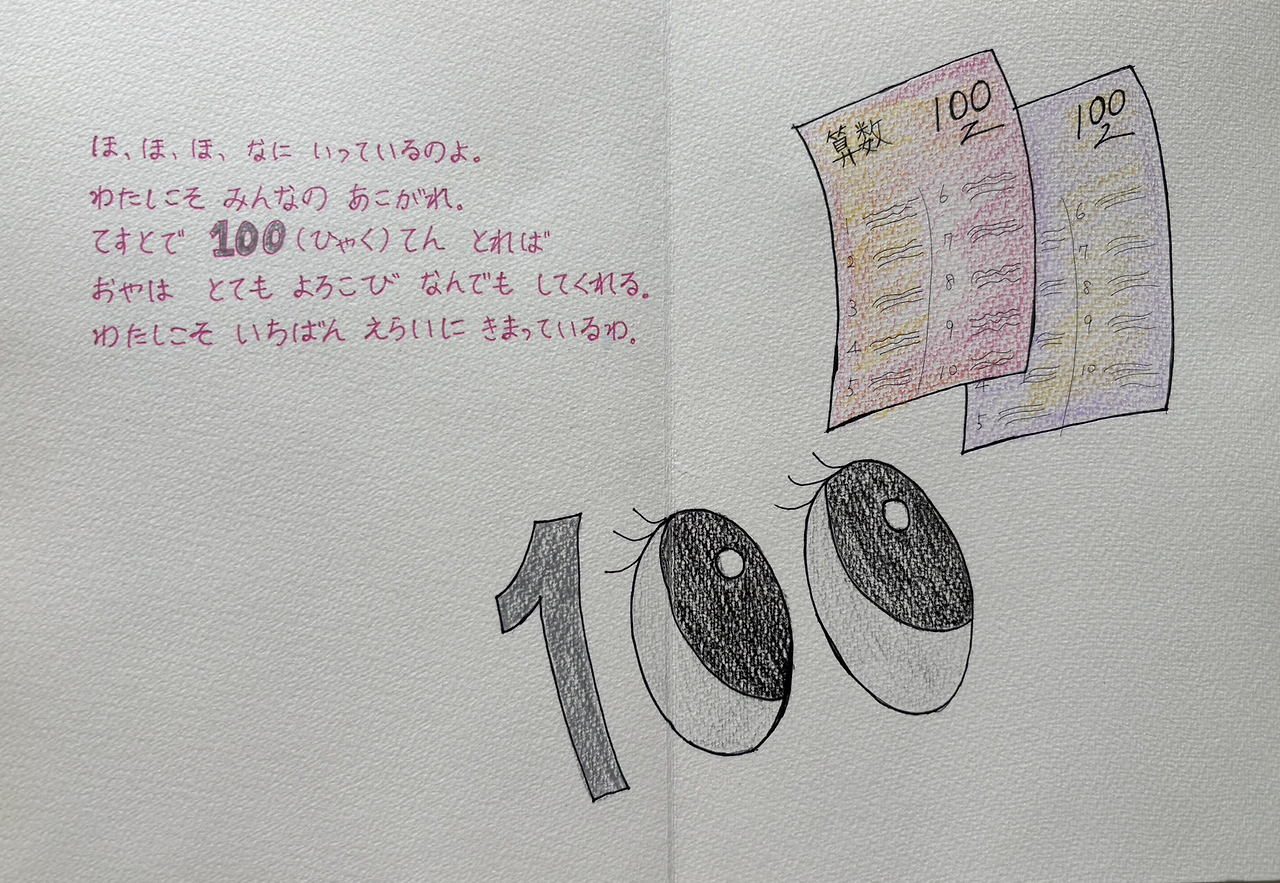 ほ、ほ、ほ、なに いっているのよ。
わたしこそ みんなの あこがれ。
てすとで 100(ひゃく)てん とれば
おやは とても よろこび なんでも してくれる。
わたしこそ いちばん えらいに きまっているわ。
算数 100
6
2 7
3 8
4 9
5 10
100
6
7
8
9
4 10
5
100